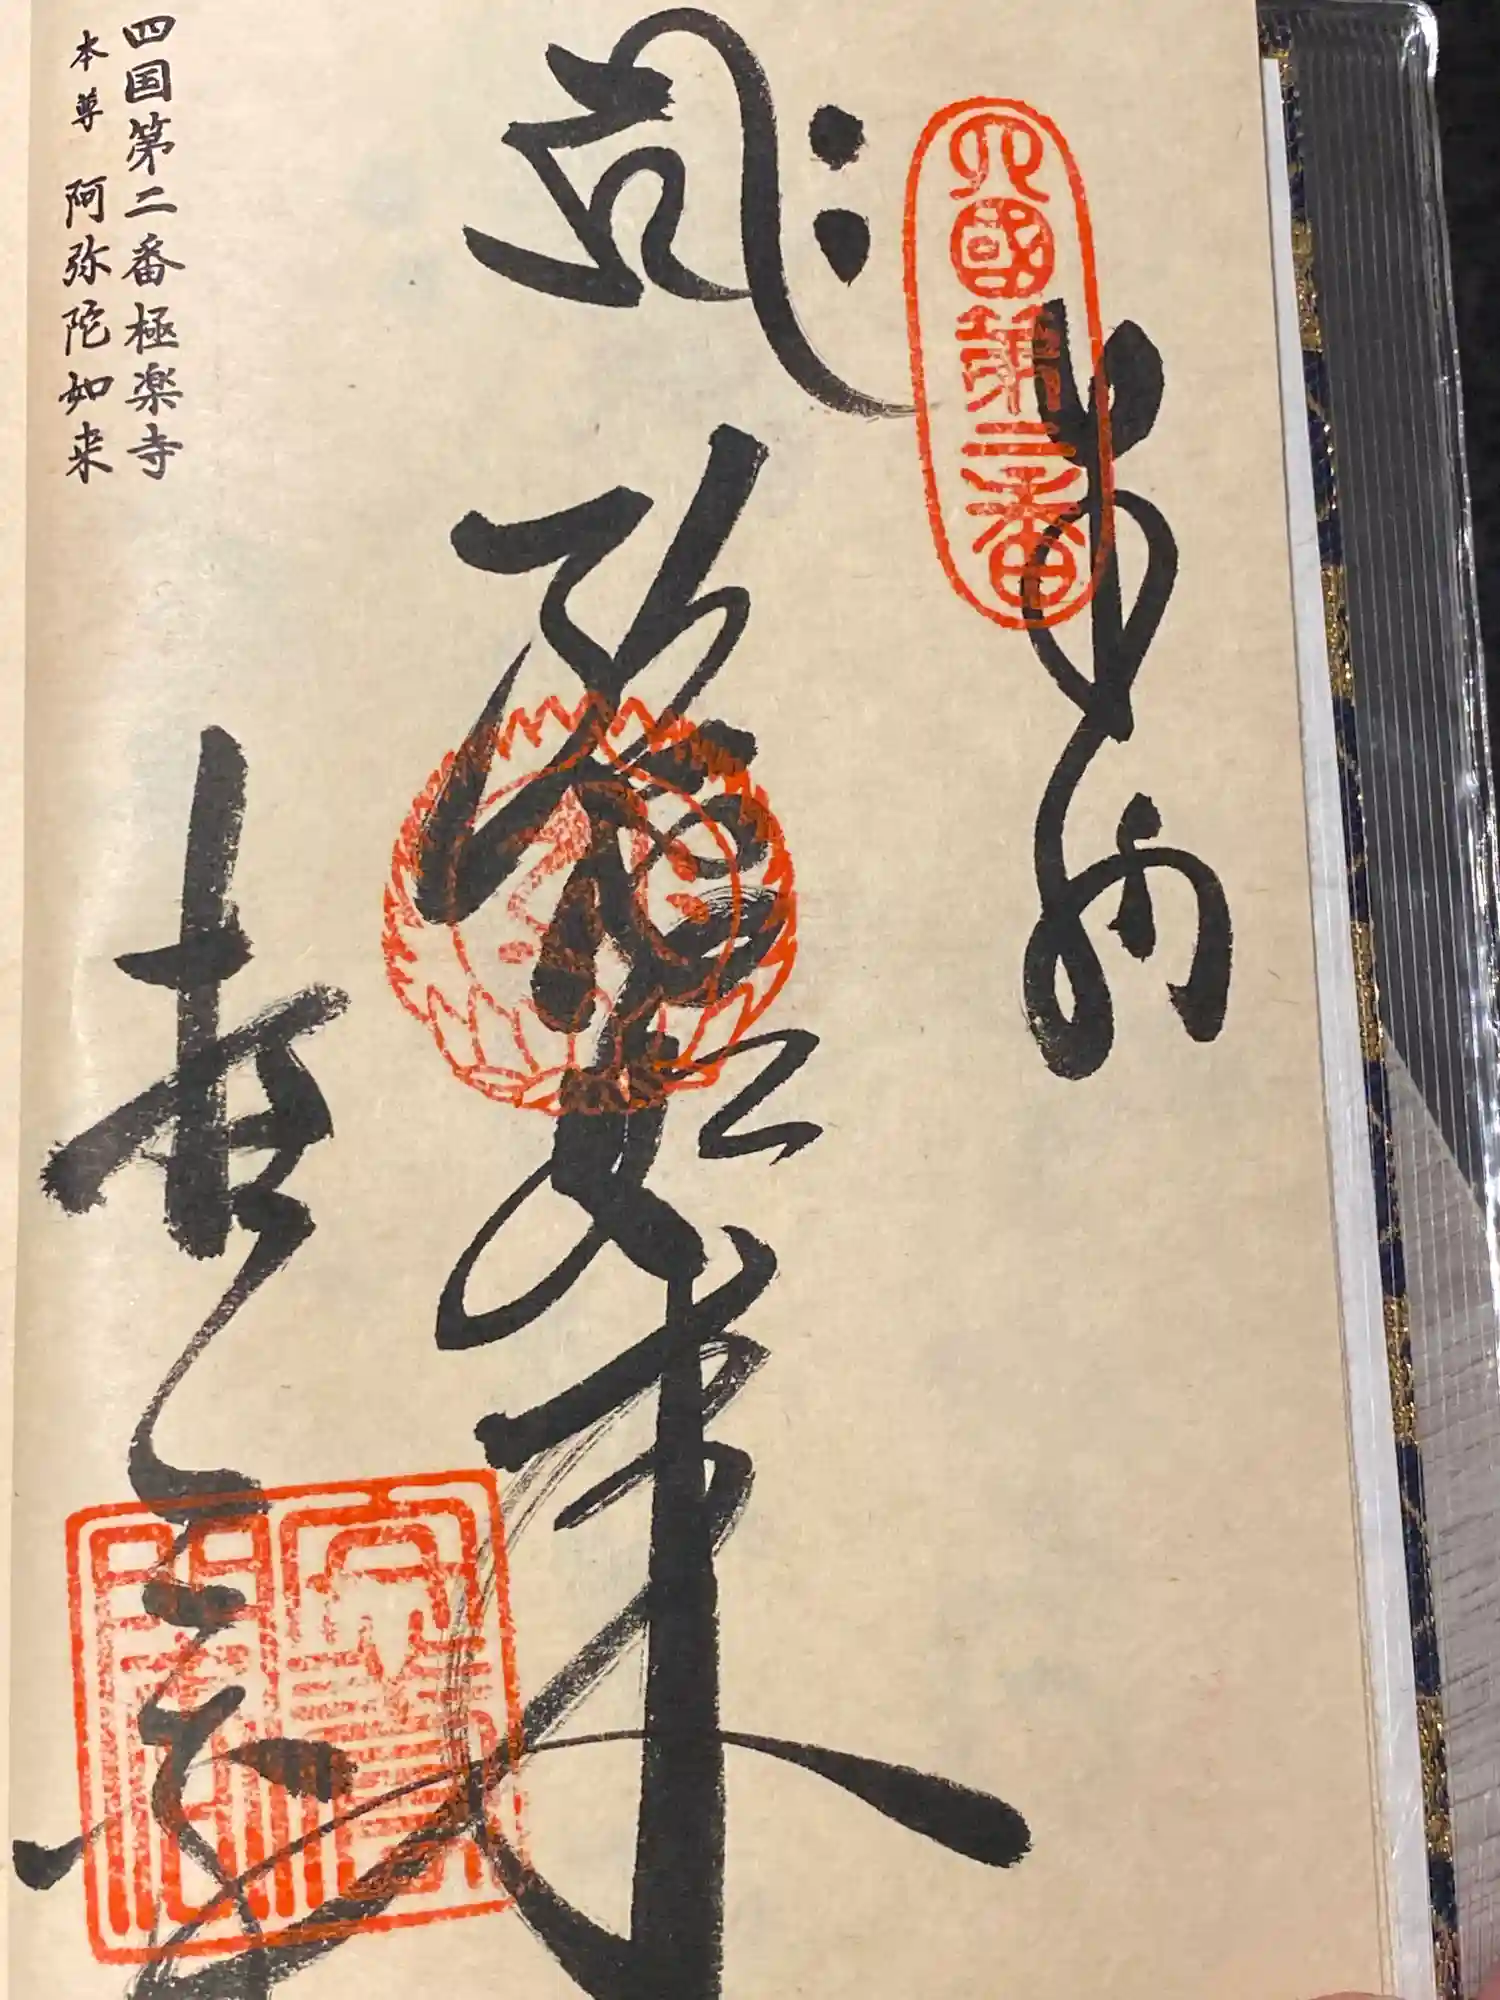 四國第二番
奉納
阿弥陀如来
極楽寺
四国第二番極楽寺
本尊 阿弥陀如来